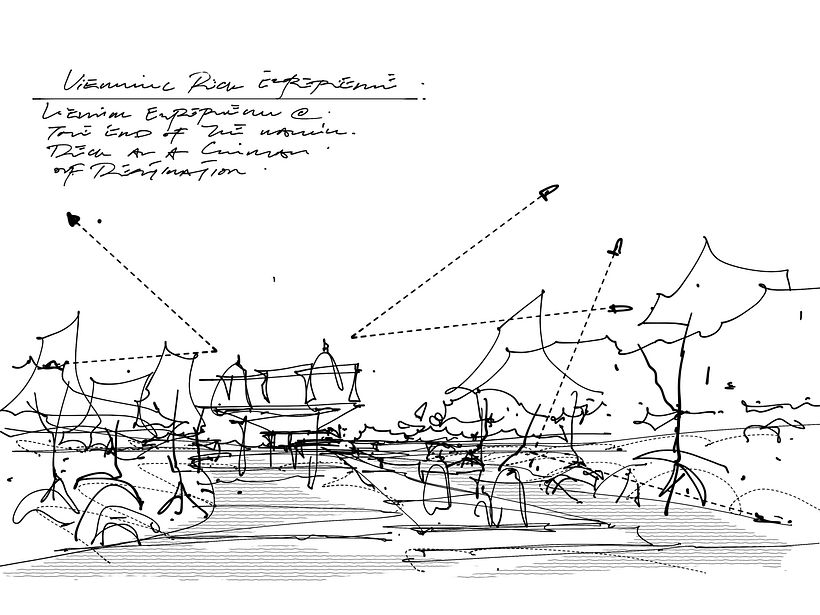 Viewing Deck Experience
Viewing Experience @
The End of The
Deck as a
of Destination